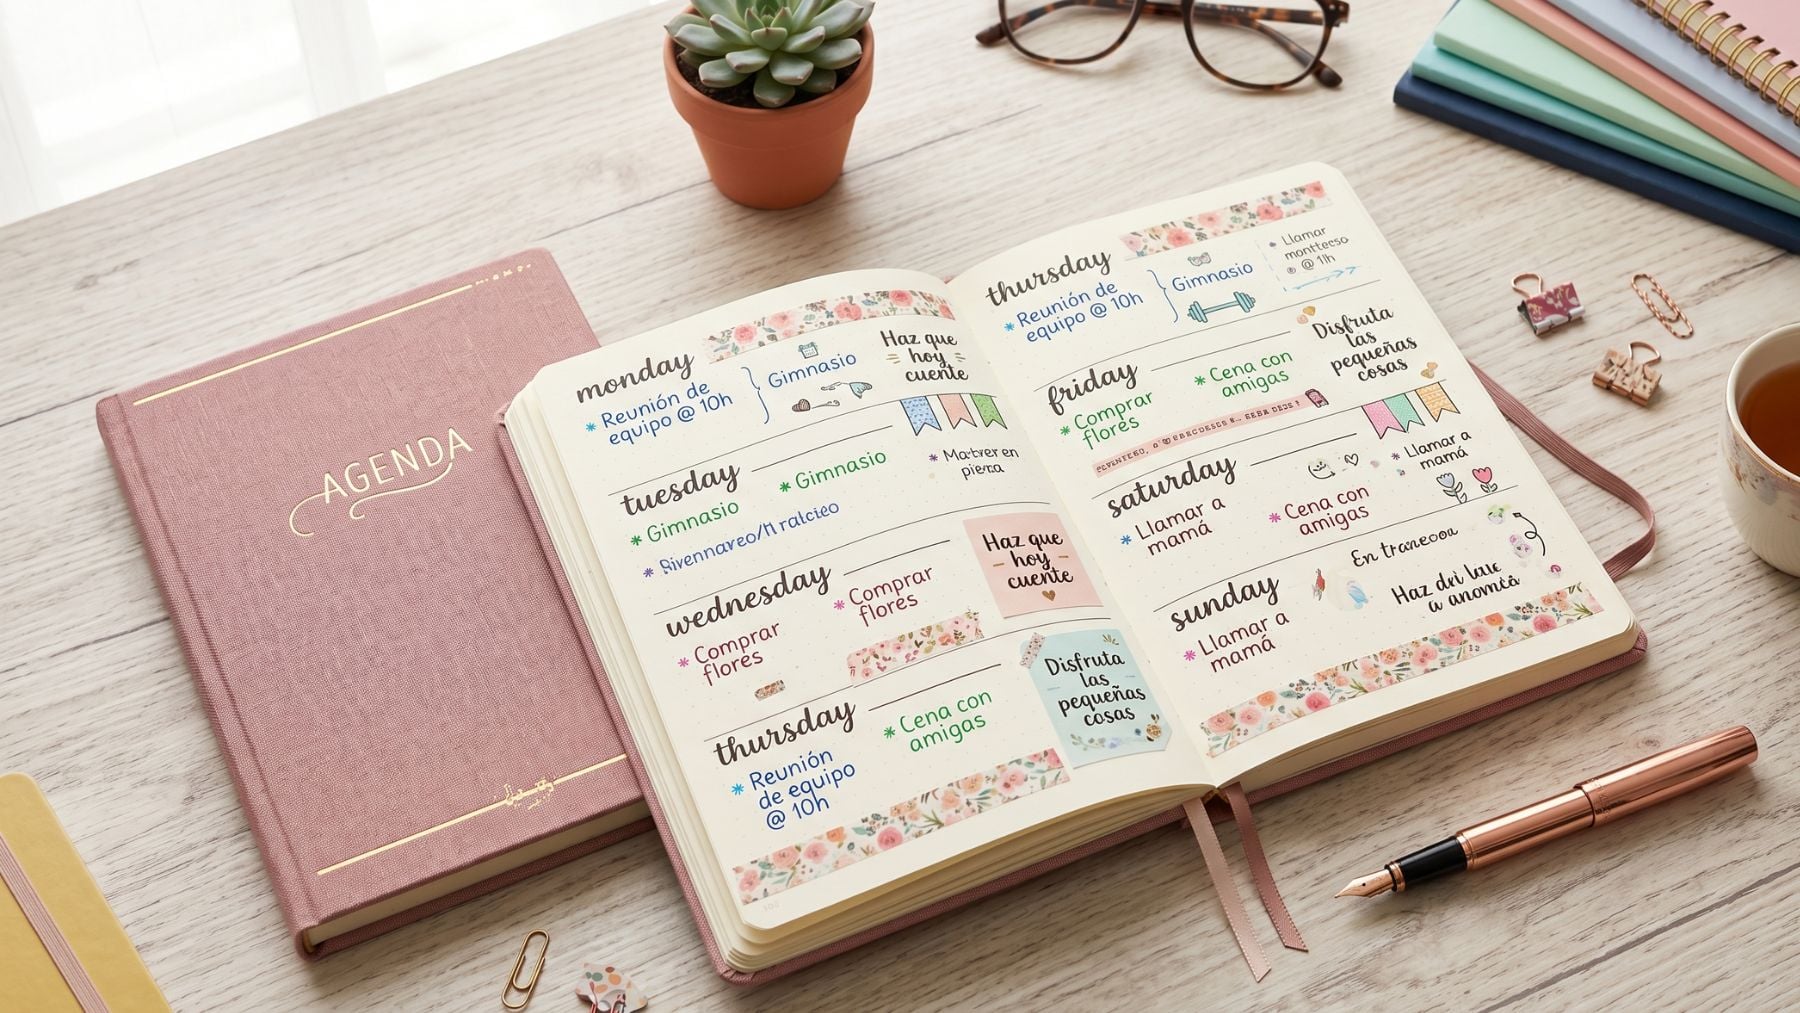 AGENDA
monday
* Reunión de
equipo @ 10h
Gimnasio
Haz que
hoy
cuente
tuesday
* Gimnasio
* Gimnasio
*
en
wednesday
* Comprar
flores
* Comprar
flores
Haz que
hoy
cuente
thursday
* Reunión
de equipo
@ 10h
* Cena con
amigas
Disfruta
las
pequeñas
cosas
thursday
* Reunión de
equipo @ 10h
Gimnasio
* Llamar
@ 11h
friday
* Comprar
flores
* Cena con
amigas
Disfruta
las
pequeñas
cosas
saturday
* Llamar a
mamá
* Cena con
amigas
* Llamar a
mamá
sunday
* Llamar a
mamá
En
Haz
a